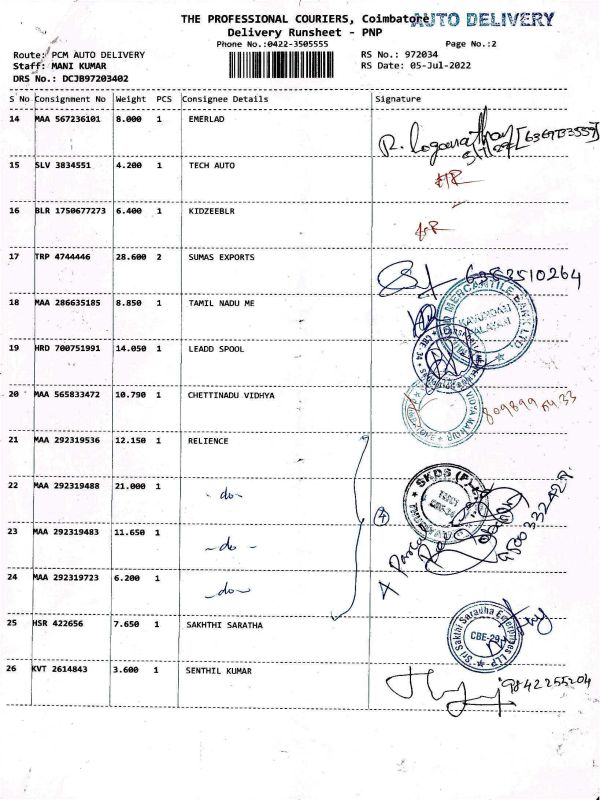 THE PROFESSIONAL COURIERS, Coimbatore AUTO DELIVERY
Delivery Runsheet - PNP
Phone No.:0422-3505555 Page No.:2
Route: PCM AUTO DELIVERY RS No.: 972034
Staff: MANI KUMAR RS Date: 05-Jul-2022
DRS No.: DCJB97203402
S No Consignment No Weight PCS Consignee Details Signature
14 MAA 567236101 8.000 1 EMERLAD
15 SLV 3834551 4.200 1 TECH AUTO
16 BLR 1750677273 6.400 1 KIDZEEBLR
17 TRP 4744446 28.600 2 SUMAS EXPORTS
6382510264
18 MAA 286635185 8.850 1 TAMIL NADU ME
MERCANTILE BANK LTD
19 HRD 700751991 14.050 1 LEADD SPOOL
20 MAA 565833472 10.790 1 CHETTINADU VIDHYA
21 MAA 292319536 12.150 1 RELIENCE
22 MAA 292319488 21.000 1 - do -
SKDS (P)
4
23 MAA 292319483 11.650 1 - do -
24 MAA 292319723 6.200 1 - do -
25 HSR 422656 7.650 1 SAKHTHI SARATHA
Sri Sakthi Saradha Enterprises LLP
CBE-29
26 KVT 2614843 3.600 1 SENTHIL KUMAR
9842255204